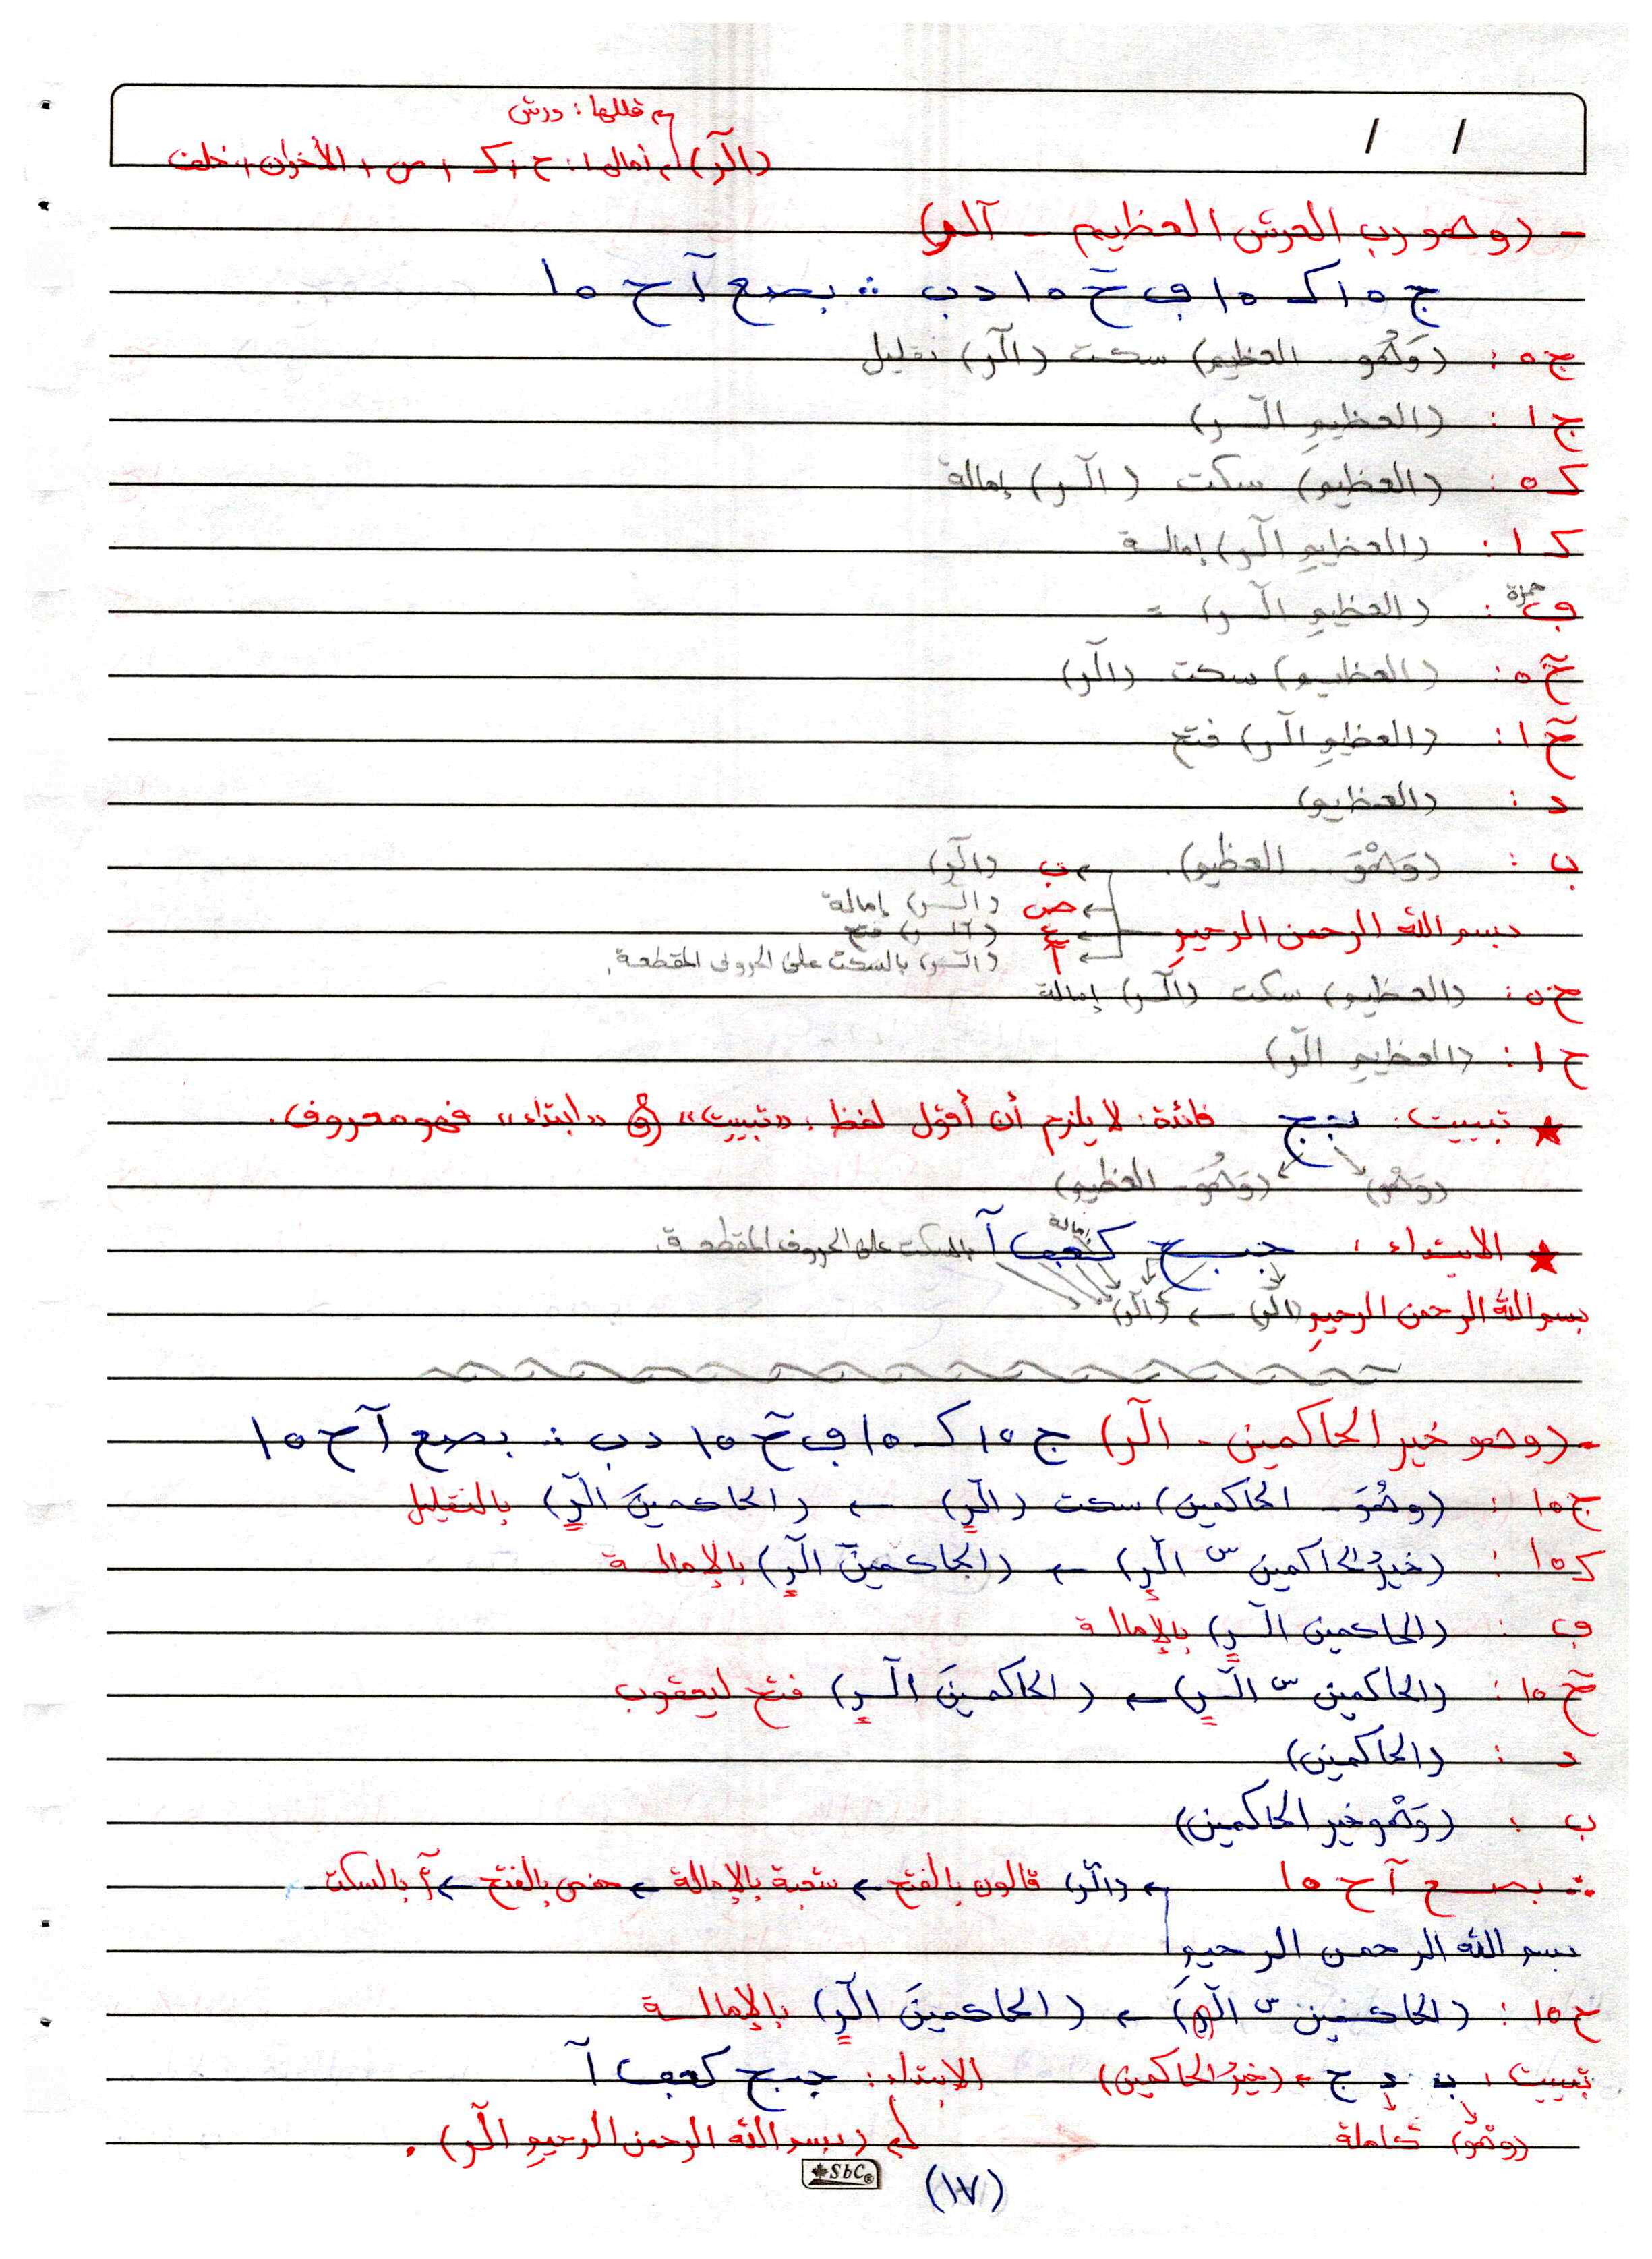 قللها : ورش
(الٓر) أمالها : ح ، ك ، ص ، الأخوان ، خلف
/ /
- (وهو رب العرش العظيم - آلر)
ج ١٥ ك ١٥ ف خٓ ١٥ د ب ∴ بصع آ ح ١٥
ج ٥ : (وَهُوَ - العظيم) سكت (الٓر) تقليل
ج ١ : (العظيمِ الٓر)
ك ٥ : (العظيم) سكت (الٓر) إمالة
ك ١ : (العظيمِ الٓر) إمالة
ف حمزة : (العظيمِ الٓر) =
حٓ ٥ : (العظيم) سكت (الٓر)
حٓ ١ : (العظيمِ الٓر) فتح
د : (العظيم)
ب : (وَهْوَ - العظيم) ب (الٓر)
ص (الٓر) إمالة
بسم الله الرحمن الرحيمِ ع (الٓر) فتح
آ (الٓر) بالسكت على الحروف المقطعة.
ح ٥ : (العظيم) سكت (الٓر) إمالة
ح ١ : (العظيمِ الٓر)
★ تبييت : بجج فائدة : لا يلزم أن أقول لفظ : «تبييت» و «ابتداء» فهو معروف.
(وَهْوَ) (وَهُوَ - العظيم)
★ الابتداء : جبح كعف آ إمالة بالسكت على الحروف المقطعة.
بسم الله الرحمن الرحيمِ (الٓر) ← (الٓر)
- (وهو خير الحاكمين - الٓر) ج ١٥ ك ١٥ ف حٓ ١٥ د ب ∴ بصع آ ح ١٥
ج ١٥ : (وهُوَ - الحاكمين) سكت (الٓر) ← (الحاكمينَ الٓر) بالتقليل
ك ١٥ : (خيرُ الحاكمين س الٓر) ← (الحاكمينَ الٓر) بالإمالة
ف : (الحاكمين الٓر) بالإمالة
حٓ ١٥ : (الحاكمين س الٓر) ← (الحاكمينَ الٓر) فتح ليعقوب
د : (الحاكمين)
ب : (وَهْو خير الحاكمين)
∴ بصع آ ح ١٥ (الٓر) قالون بالفتح ← شعبة بالإمالة ← حفص بالفتح ← آ بالسكت
بسم الله الرحمن الرحيم
ح ١٥ : (الحاكمين س الٓر) ← (الحاكمينَ الٓر) بالإمالة
تبييت : ب د ج ← (خيرُ الحاكمين) الابتداء : جبح كعف آ
(وهْو) كاملة (بسم الله الرحمن الرحيمِ الٓر).
SbC®
(١٧)